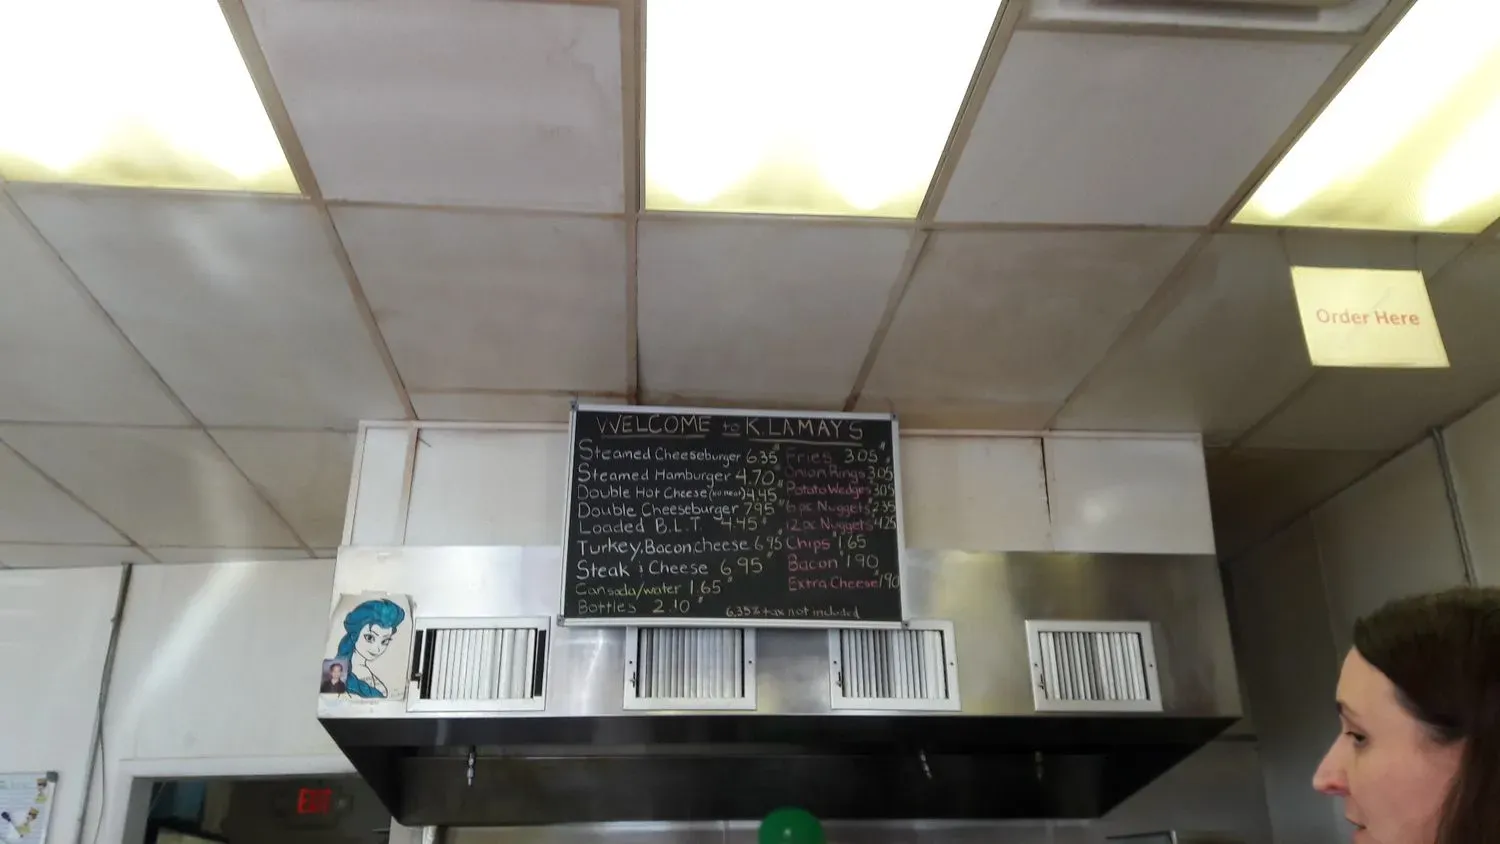 WELCOME to K.LAMAYS
Steamed Cheeseburger 6.35
Steamed Hamburger 4.70
Double Hot Cheese (no meat) 4.45
Double Cheeseburger 7.95
Loaded B.L.T. 4.45
Turkey, Bacon, cheese 6.95
Steak & Cheese 6.95
Can soda/water 1.65
Bottles 2.10
Fries 3.05
Onion Rings 3.05
Potato Wedges 3.05
6 pc Nuggets 2.35
12 pc Nuggets 4.25
Chips 1.65
Bacon 1.90
Extra Cheese 1.90
6.35% tax not included
Order Here
EXIT